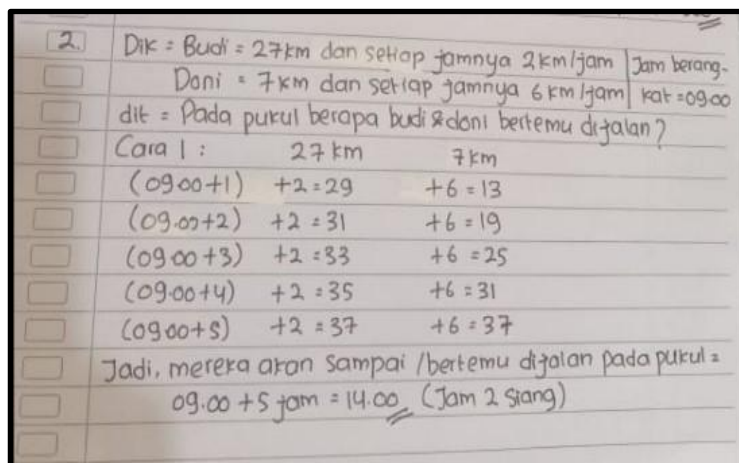 2. Dik = Budi = 27km dan setiap jamnya 2km/jam | Jam berang-
Doni = 7km dan setiap jamnya 6 km/jam | kat = 09.00
dit = Pada pukul berapa budi & doni bertemu dijalan?
Cara 1 : 27 km 7 km
(09.00+1) +2=29 +6=13
(09.00+2) +2=31 +6=19
(09.00+3) +2=33 +6=25
(09.00+4) +2=35 +6=31
(09.00+5) +2=37 +6=37
Jadi, mereka akan sampai /bertemu dijalan pada pukul =
09.00 + 5 jam = 14.00 (Jam 2 siang)